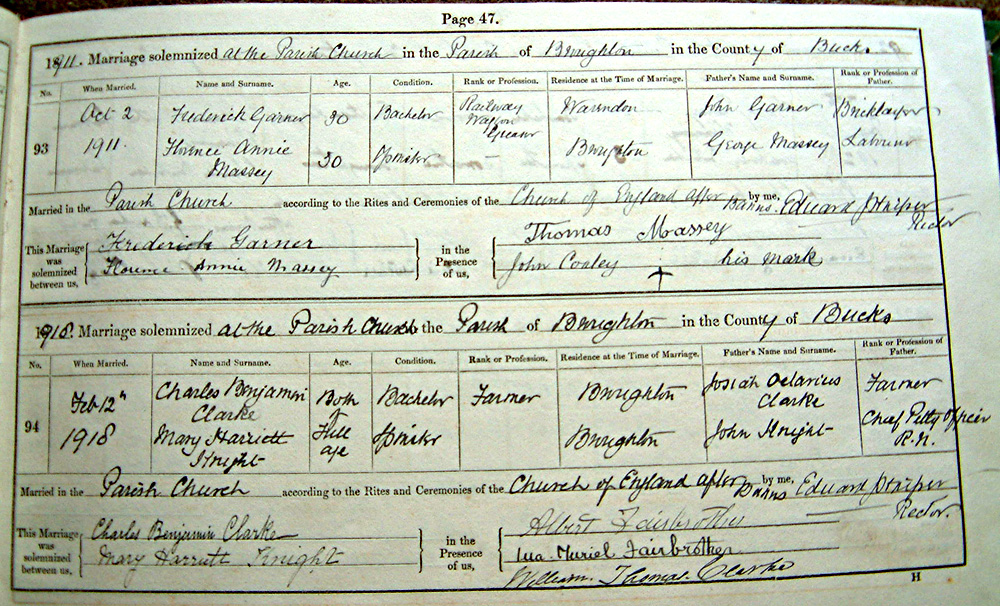 Page 47.
1911. Marriage solemnized at the Parish Church in the Parish of Broughton in the County of Bucks.
No. When Married. Name and Surname. Age. Condition. Rank or Profession. Residence at the Time of Marriage. Father's Name and Surname. Rank or Profession of Father.
93 Oct 2 Frederick Garner 30 Bachelor Railway Waggon Greaser Wavendon John Garner Bricklayer
1911. Florence Annie Massey 30 Spinster — Broughton George Massey Labourer
Married in the Parish Church according to the Rites and Ceremonies of the Church of England after Banns by me, Edward J Harper Rector
This Marriage was solemnized between us, Frederick Garner in the Presence of us, Thomas Massey
Florence Annie Massey John Cooley his mark
1918. Marriage solemnized at the Parish Church the Parish of Broughton in the County of Bucks
No. When Married. Name and Surname. Age. Condition. Rank or Profession. Residence at the Time of Marriage. Father's Name and Surname. Rank or Profession of Father.
94 Feb 12th Charles Benjamin Clarke Both of Full age Bachelor Farmer Broughton Josiah Clarke Farmer
1918 Mary Harriett Knight Spinster Broughton John Knight Chief Petty Officer R.N.
Married in the Parish Church according to the Rites and Ceremonies of the Church of England after Banns by me, Edward J Harper Rector.
This Marriage was solemnized between us, Charles Benjamin Clarke in the Presence of us, Albert Fairbrother
Mary Harriett Knight Muriel Fairbrother
William Thomas Clarke
H